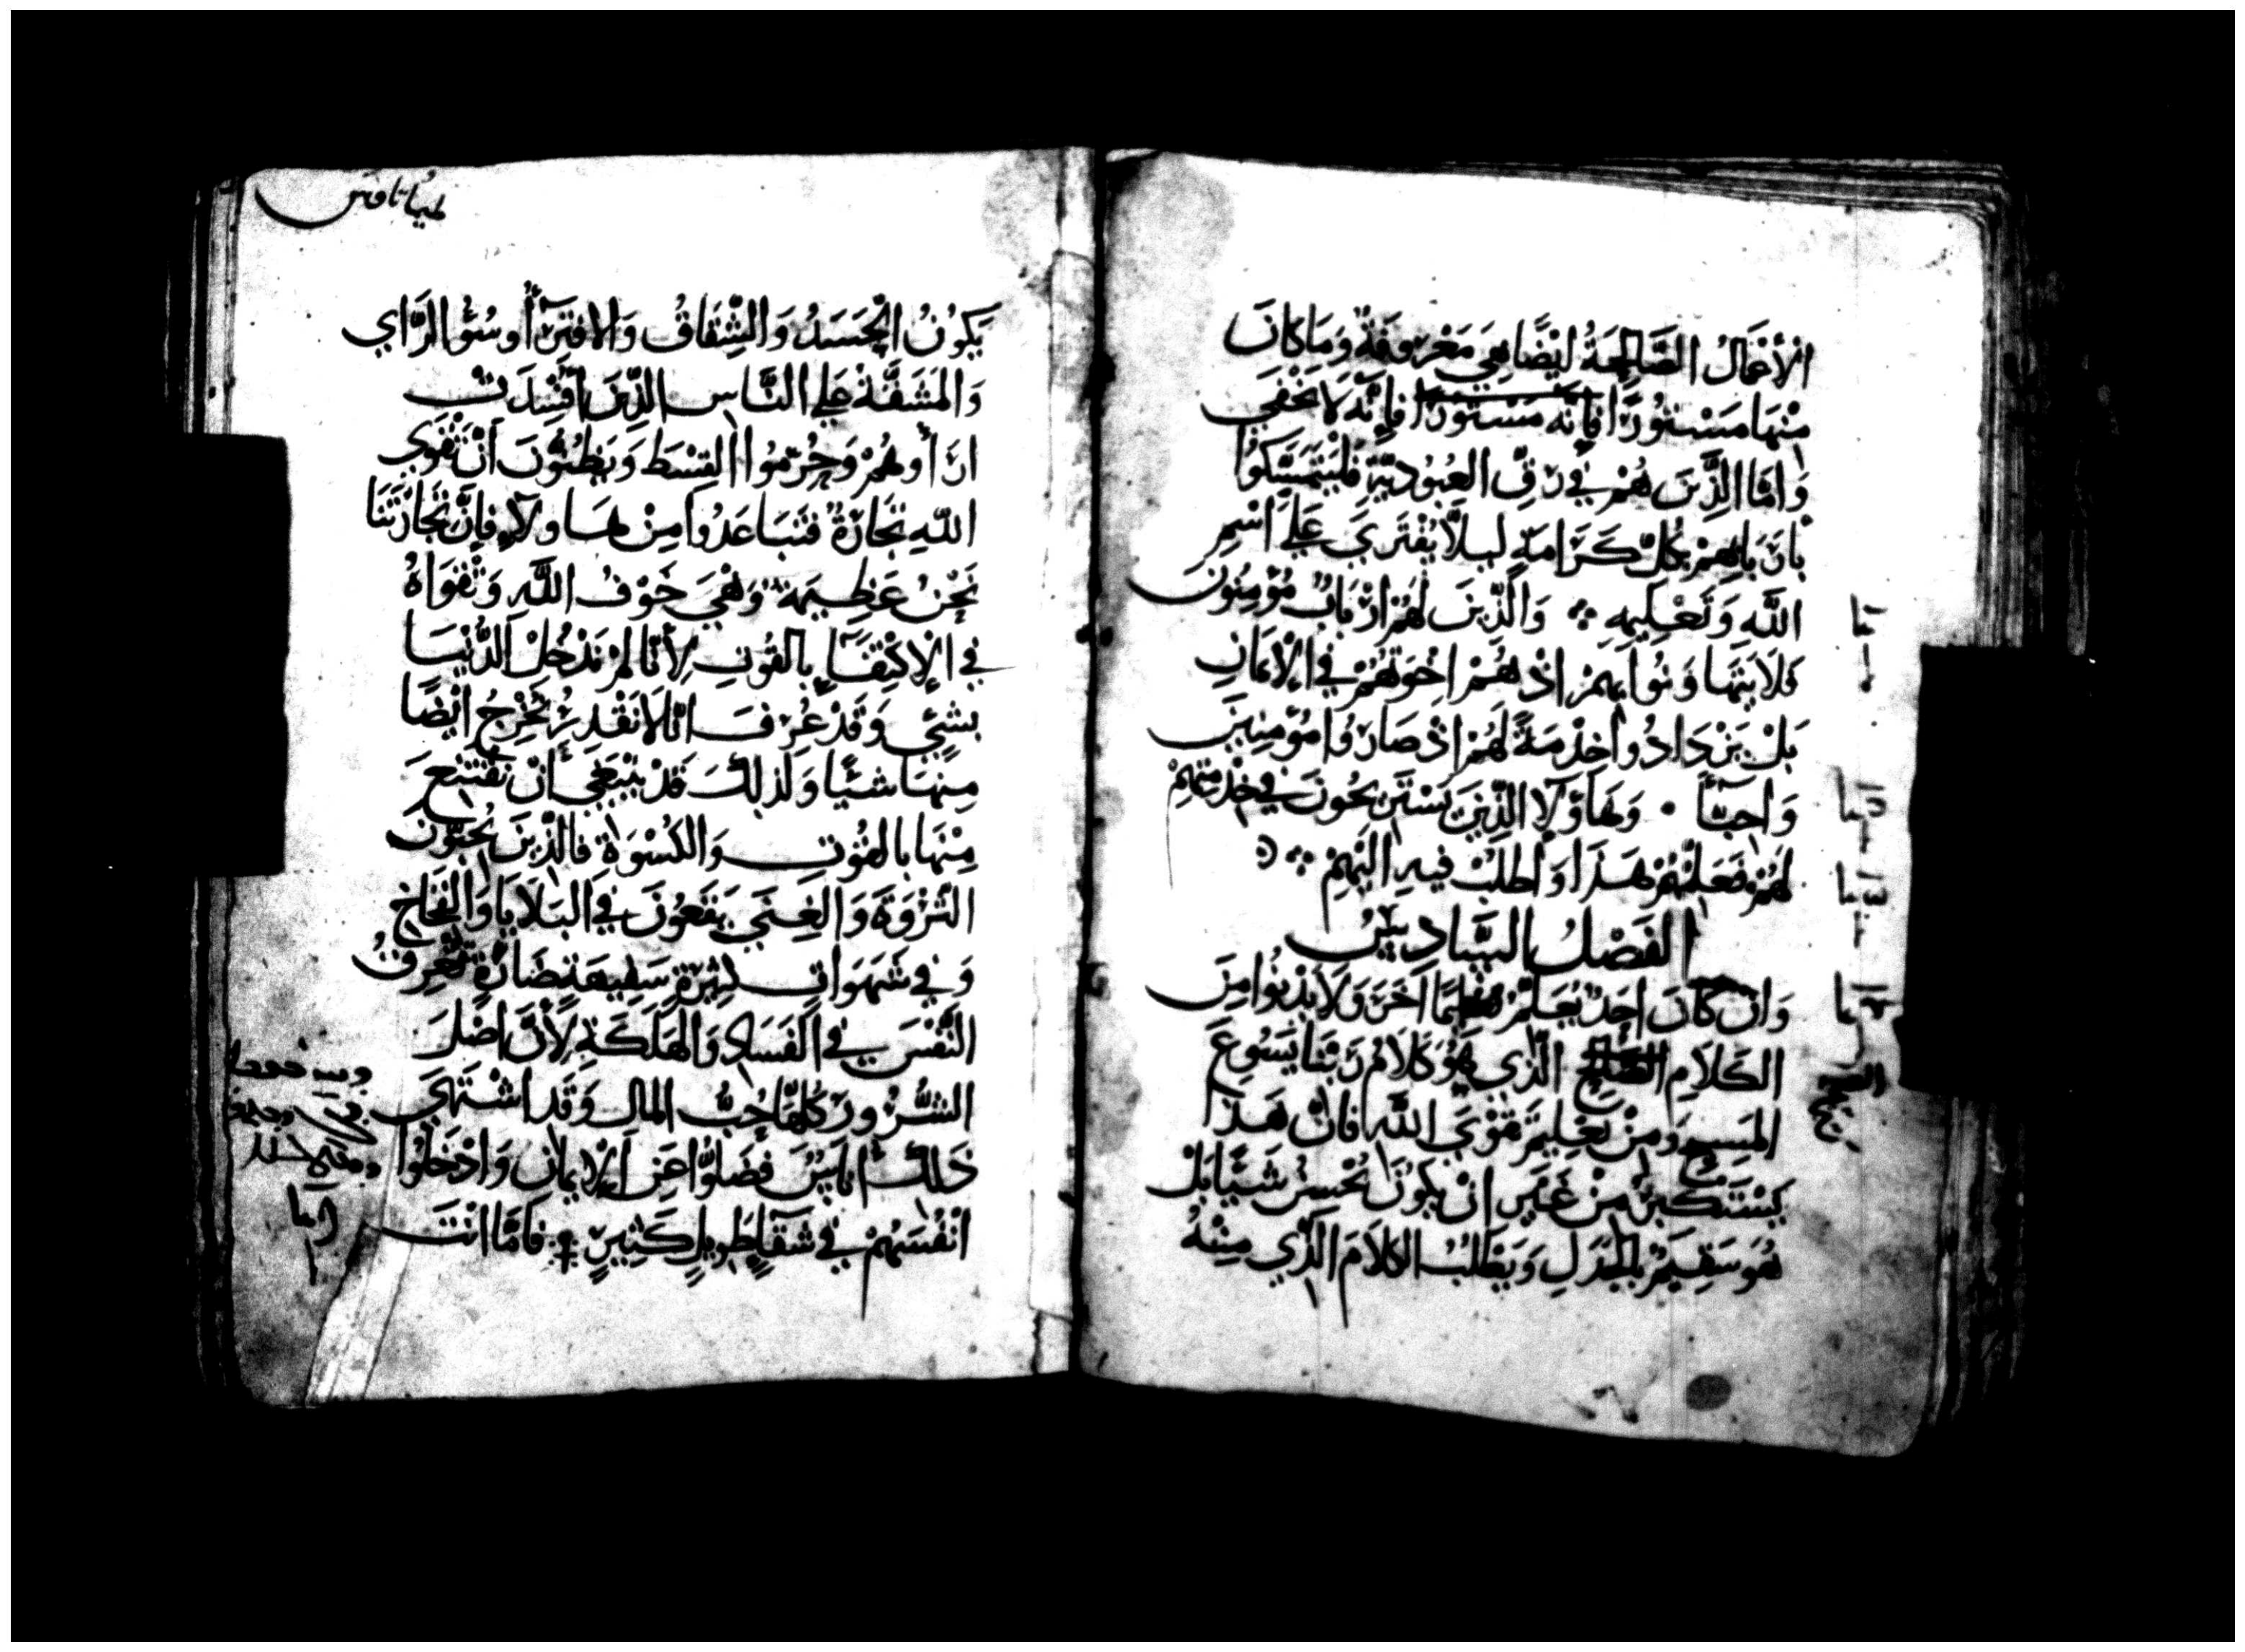 الأَعْمَالُ الصَّالِحَةُ ايْضًا هِيَ مَعْرُوفَةٌ وَمَا كَانَ
مِنْهَا مَسْتُورًا فإنه مستورا فَإِنَّهُ لَا يَخْفَي
وَامَّا الَّذِينَ هُمْ فِي رِقِّ العُبُودِيَّةِ فَلْيَتَمَسَّكُوا
بأَرْبَابِهِمْ بِكُلِّ كَرَامَةٍ لِيلَّا يُفْتَرَي عَلَي اسْمِ
اللَّهِ وَتَعْلِيمِهِ ܀ وَالَّذِينَ لَهُمْ ارْبَابٌ مُؤْمِنُونَ
فَلَا يَتَهَاوَنُوا بِهِمْ اذْ هُمْ اخْوَتُهُمْ فِي الْإِيمَانِ
بَلْ يَزْدَادُوا خِدْمَةً لَهُمْ اذْ صَارُوا مُؤْمِنِينَ
وَاحِبَّآءً ۰ وَهَاوُلَآ الَّذِينَ يَسْتَرِيحُونَ فِي خِدْمَتِهِمْ
لَهُمْ فَعَلِّمْهُمْ هَذَا وَاطْلُبْ فِيهِ الَيْهِمْ ܀
الفَصْلُ السَّادِسُ
وَانْ كَانَ احَدٌ يُعَلِّمُ تعليمًا آخَرَ وَلَا يَدْنُوا مِنَ
الكَلَامِ الصحيح الَّذِي هُوَ كَلَامُ رَبِّنَا يَسُوعَ
المَسِيحِ وَمِنْ تَعْلِيمِ تَقْوَي اللَّه فَانَّ هَذَا
يَسْتَكْبِرُ مِنْ غَيْرِ انْ يَكُونَ يُحْسِنُ شَيًّا بَلْ
هُوَ سَقِيمٌ بِالجَدَلِ وَيَطْلُبُ الكَلَامَ الَّذِي مِنْهُ
الصحيح
طيماتاوس
يَكُونُ الْحَسَدُ وَالشِّقَاقُ وَالافْتِرَآ أُو سُؤُ الرَّاي
وَالمَشَقَّةُ عَلَي النَّاسِ الَّذِينَ افْسِدَتْ
ارَآوهُمْ وَحُرِّمُوا القِسْطَ وَيَظُنُّونَ انَّ تَقْوَي
اللَّهِ تِجَارَةٌ فَتَبَاعَدُوا مِنْ هَاولَاءِ فَإِنَّ تِجَارَتَنَا
نَحْنُ عَظِيمَةٌ وَهْيَ خَوْفُ اللَّهِ وَتَقْوَاهُ
فِي الإِكْتِفَآءِ بِالقُوتِ لِأَنَّا لَمْ نَدْخُلْ الدُّنْيَا
بِشَيٍّ وَقَدْ عُرِفَ انَّا لَا نَقْدِرُ نُخْرِجُ ايْضًا
مِنْهَا شَيًّا وَلِذلِكَ قَدْ يَنْبَغِي أَنْ نَقْتَنِعَ
مِنْهَا بِالقُوتِ وَالكُسْوَةِ فَالَّذِينَ يُحِبُّونَ
الثَّرْوَةَ وَالغِنَي يَقَعُونَ فِي البَلَايَا وَالفِخَاخِ
وَفِي شَهَوَاتٍ كثِيرَةٍ سَفِيهَةٍ ضَارَّةٍ تُغْرِقُ
النَّفْسَ فِي الفَسَادِ وَالهَلَكَةِ لِأَنَّ اصْلَ
الشُّرُورِ كُلِّهَا حُبُّ المَالِ وَقَدِ اشْتَهَي
ذَلكَ أُنَاسٌ فَضَلُّوا عَنِ الإِيمَانِ وَادْخَلُوا
انْفُسَهُمْ فِي شَقَاءٍ طَوِيلٍ كَثِيرٍ ܀ فَامَّا انْتَ